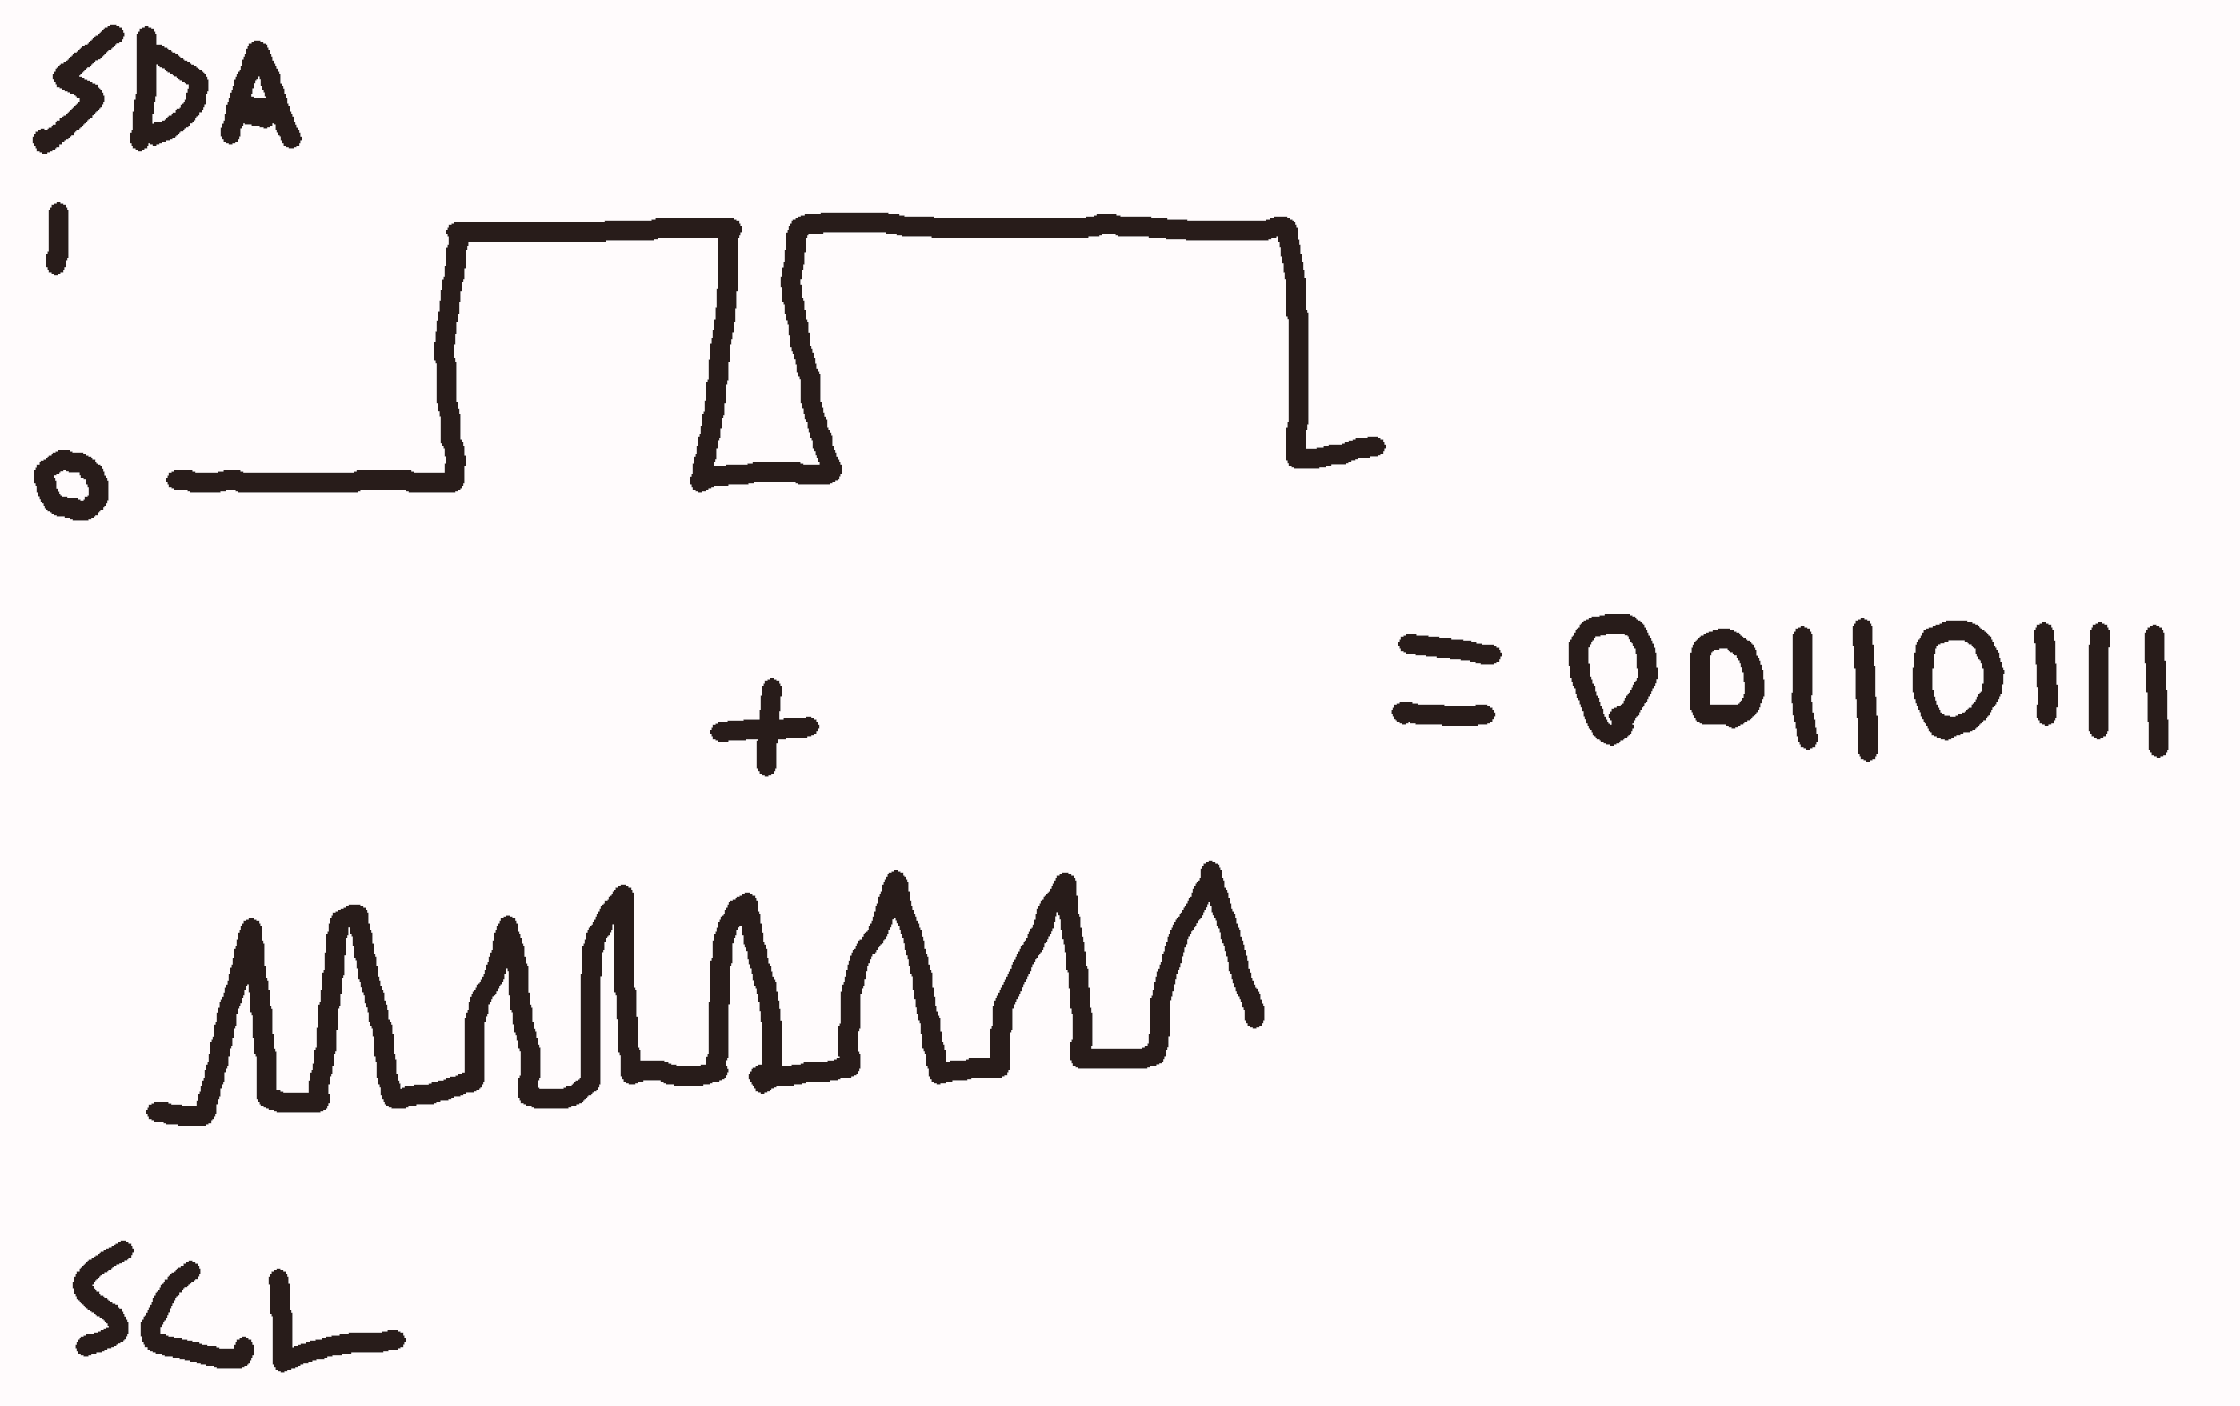 SDA
1
0
+
= 00110111
SCL